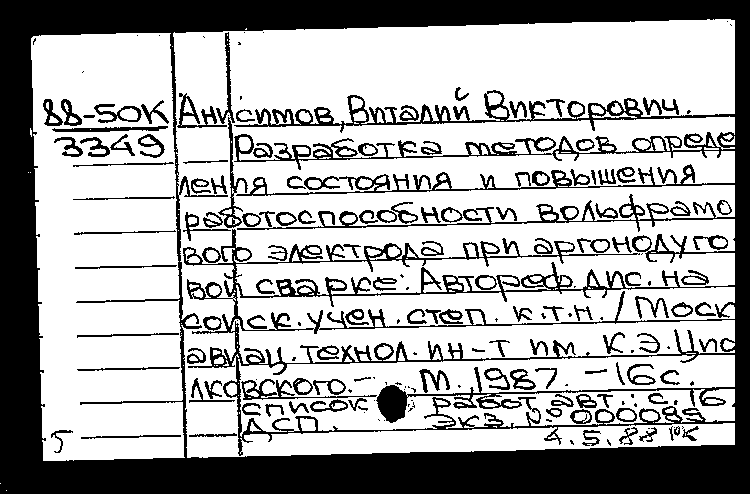 88-50К Анисимов, Виталий Викторович.
3349 Разработка методов опреде
ления состояния и повышения
работоспособности вольфрамо
вого электрода при аргонодуго
вой сварке: Автореф. дис. на
соиск. учен. степ. к.т.н. / Моск
авиац. технол. ин-т им. К.Э. Цио
лковского. - М., 1987. - 16 с.
список работ авт.: с. 16.
ДСП. Экз. № 000088
5 4.5.88